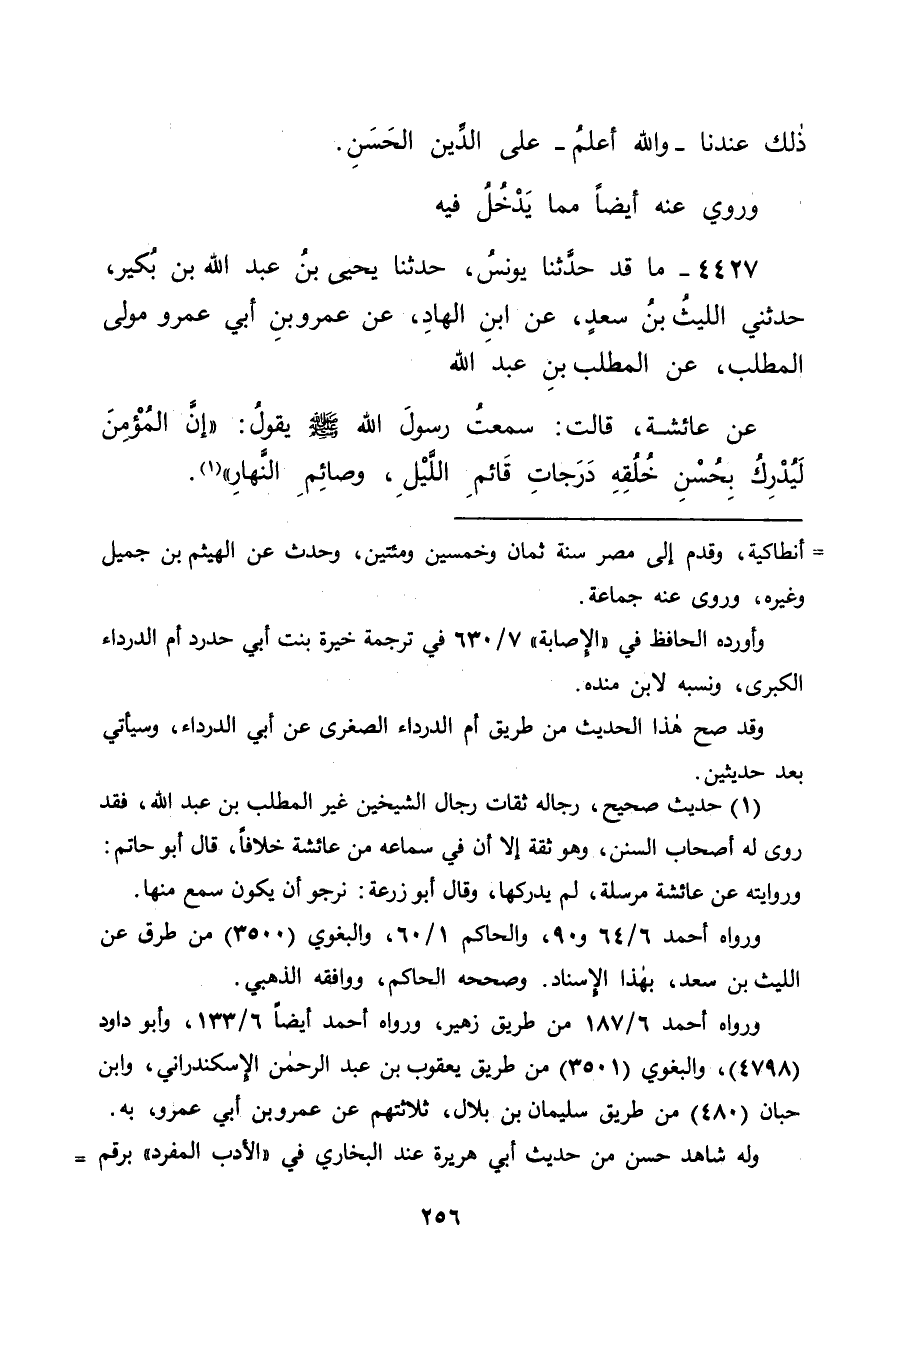 ذٰلك عندنا ـ والله أعلمُ ـ على الدِّين الحَسَنِ.
وروي عنه أيضاً مما يَدْخُلُ فيه
٤٤٢٧ ـ ما قد حدَّثنا يونسُ، حدثنا يحيى بنُ عبد الله بن بُكير،
حدثني الليثُ بنُ سعدٍ، عن ابنِ الهادِ، عن عمرو بنِ أبي عمرو مولى
المطلب، عن المطلب بنِ عبد الله
عن عائشة، قالت: سمعتُ رسولَ الله ﷺ يقولُ: «إنَّ المُؤْمِنَ
لَيُدْرِكُ بِحُسْنِ خُلُقِهِ دَرَجاتِ قَائمِ اللَّيْلِ، وصائِمِ النَّهارِ»(١).
= أنطاكية، وقدم إلى مصر سنة ثمان وخمسين ومئتين، وحدث عن الهيثم بن جميل
وغيره، وروى عنه جماعة.
وأورده الحافظ في «الإصابة» ٦٣٠/٧ في ترجمة خيرة بنت أبي حدرد أم الدرداء
الكبرى، ونسبه لابن منده.
وقد صح هٰذا الحديث من طريق أم الدرداء الصغرى عن أبي الدرداء، وسيأتي
بعد حديثين.
(١) حديث صحيح، رجاله ثقات رجال الشيخين غير المطلب بن عبد الله، فقد
روى له أصحاب السنن، وهو ثقة إلا أن في سماعه من عائشة خلافاً، قال أبو حاتم:
وروايته عن عائشة مرسلة، لم يدركها، وقال أبو زرعة: نرجو أن يكون سمع منها.
ورواه أحمد ٦٤/٦ و٩٠، والحاكم ٦٠/١، والبغوي (٣٥٠٠) من طرق عن
الليث بن سعد، بهٰذا الإسناد. وصححه الحاكم، ووافقه الذهبي.
ورواه أحمد ١٨٧/٦ من طريق زهير، ورواه أحمد أيضاً ١٣٣/٦، وأبو داود
(٤٧٩٨)، والبغوي (٣٥٠١) من طريق يعقوب بن عبد الرحمٰن الإسكندراني، وابن
حبان (٤٨٠) من طريق سليمان بن بلال، ثلاثتهم عن عمرو بن أبي عمرو، به.
وله شاهد حسن من حديث أبي هريرة عند البخاري في «الأدب المفرد» برقم =
٢٥٦